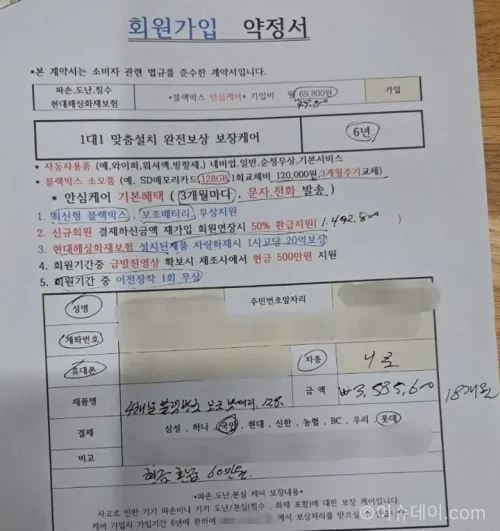 회원가입 약정서
*본 계약서는 소비자 관련 법규를 준수한 계약서입니다.
파손.도난.침수 현대해상화재보험 *블랙박스 안심케어* 가입비 월 69,800원 가입
49,800
1대1 맞춤설치 완전보상 보장케어 6년
* 자동차용품 (예,와이퍼,워셔액,방향제,) 네비업,일반,순정무상,기본서비스
* 블랙박스 소모품 (예, SD메모리카드 128GB 1회교체비 120,000원,3개월주기교체)
* 안심케어 기본혜택 (3개월마다), 문자.전화 발송
1. 최신형 블랙박스, 보조배터리 무상지원
2. 신규회원 결제하신금액 재가입 회원연장시 50% 환급지원
3. 현대해상화재보험 설치된제품 차량화재시 1사고당 20억보상
4. 회원기간중 급발진영상 확보시 제조사에서 현금 500만원 지원
5. 회원기간 중 이전장착 1회 무상
성명 주민번호앞자리
계좌번호
휴대폰 차종 니로
금액 ₩3,585,600 18개월
제품명 4채널 블랙박스 보조밧데리, 128
결제 삼성 , 하나 , 국민 , 현대 , 신한 , 농협 , BC , 우리 , 롯데
비고 현금 환급 60만원
*파손,도난,분실 케어 보장내용*
사고로 인한 기기 파손이나 기기 도난/분실(침수 , 화재 포함)에 대한 보장 케어입니다.
케어 가입시 가입기간 6년에 한하여 에서 보상처리를 받으실
이슈데이.com